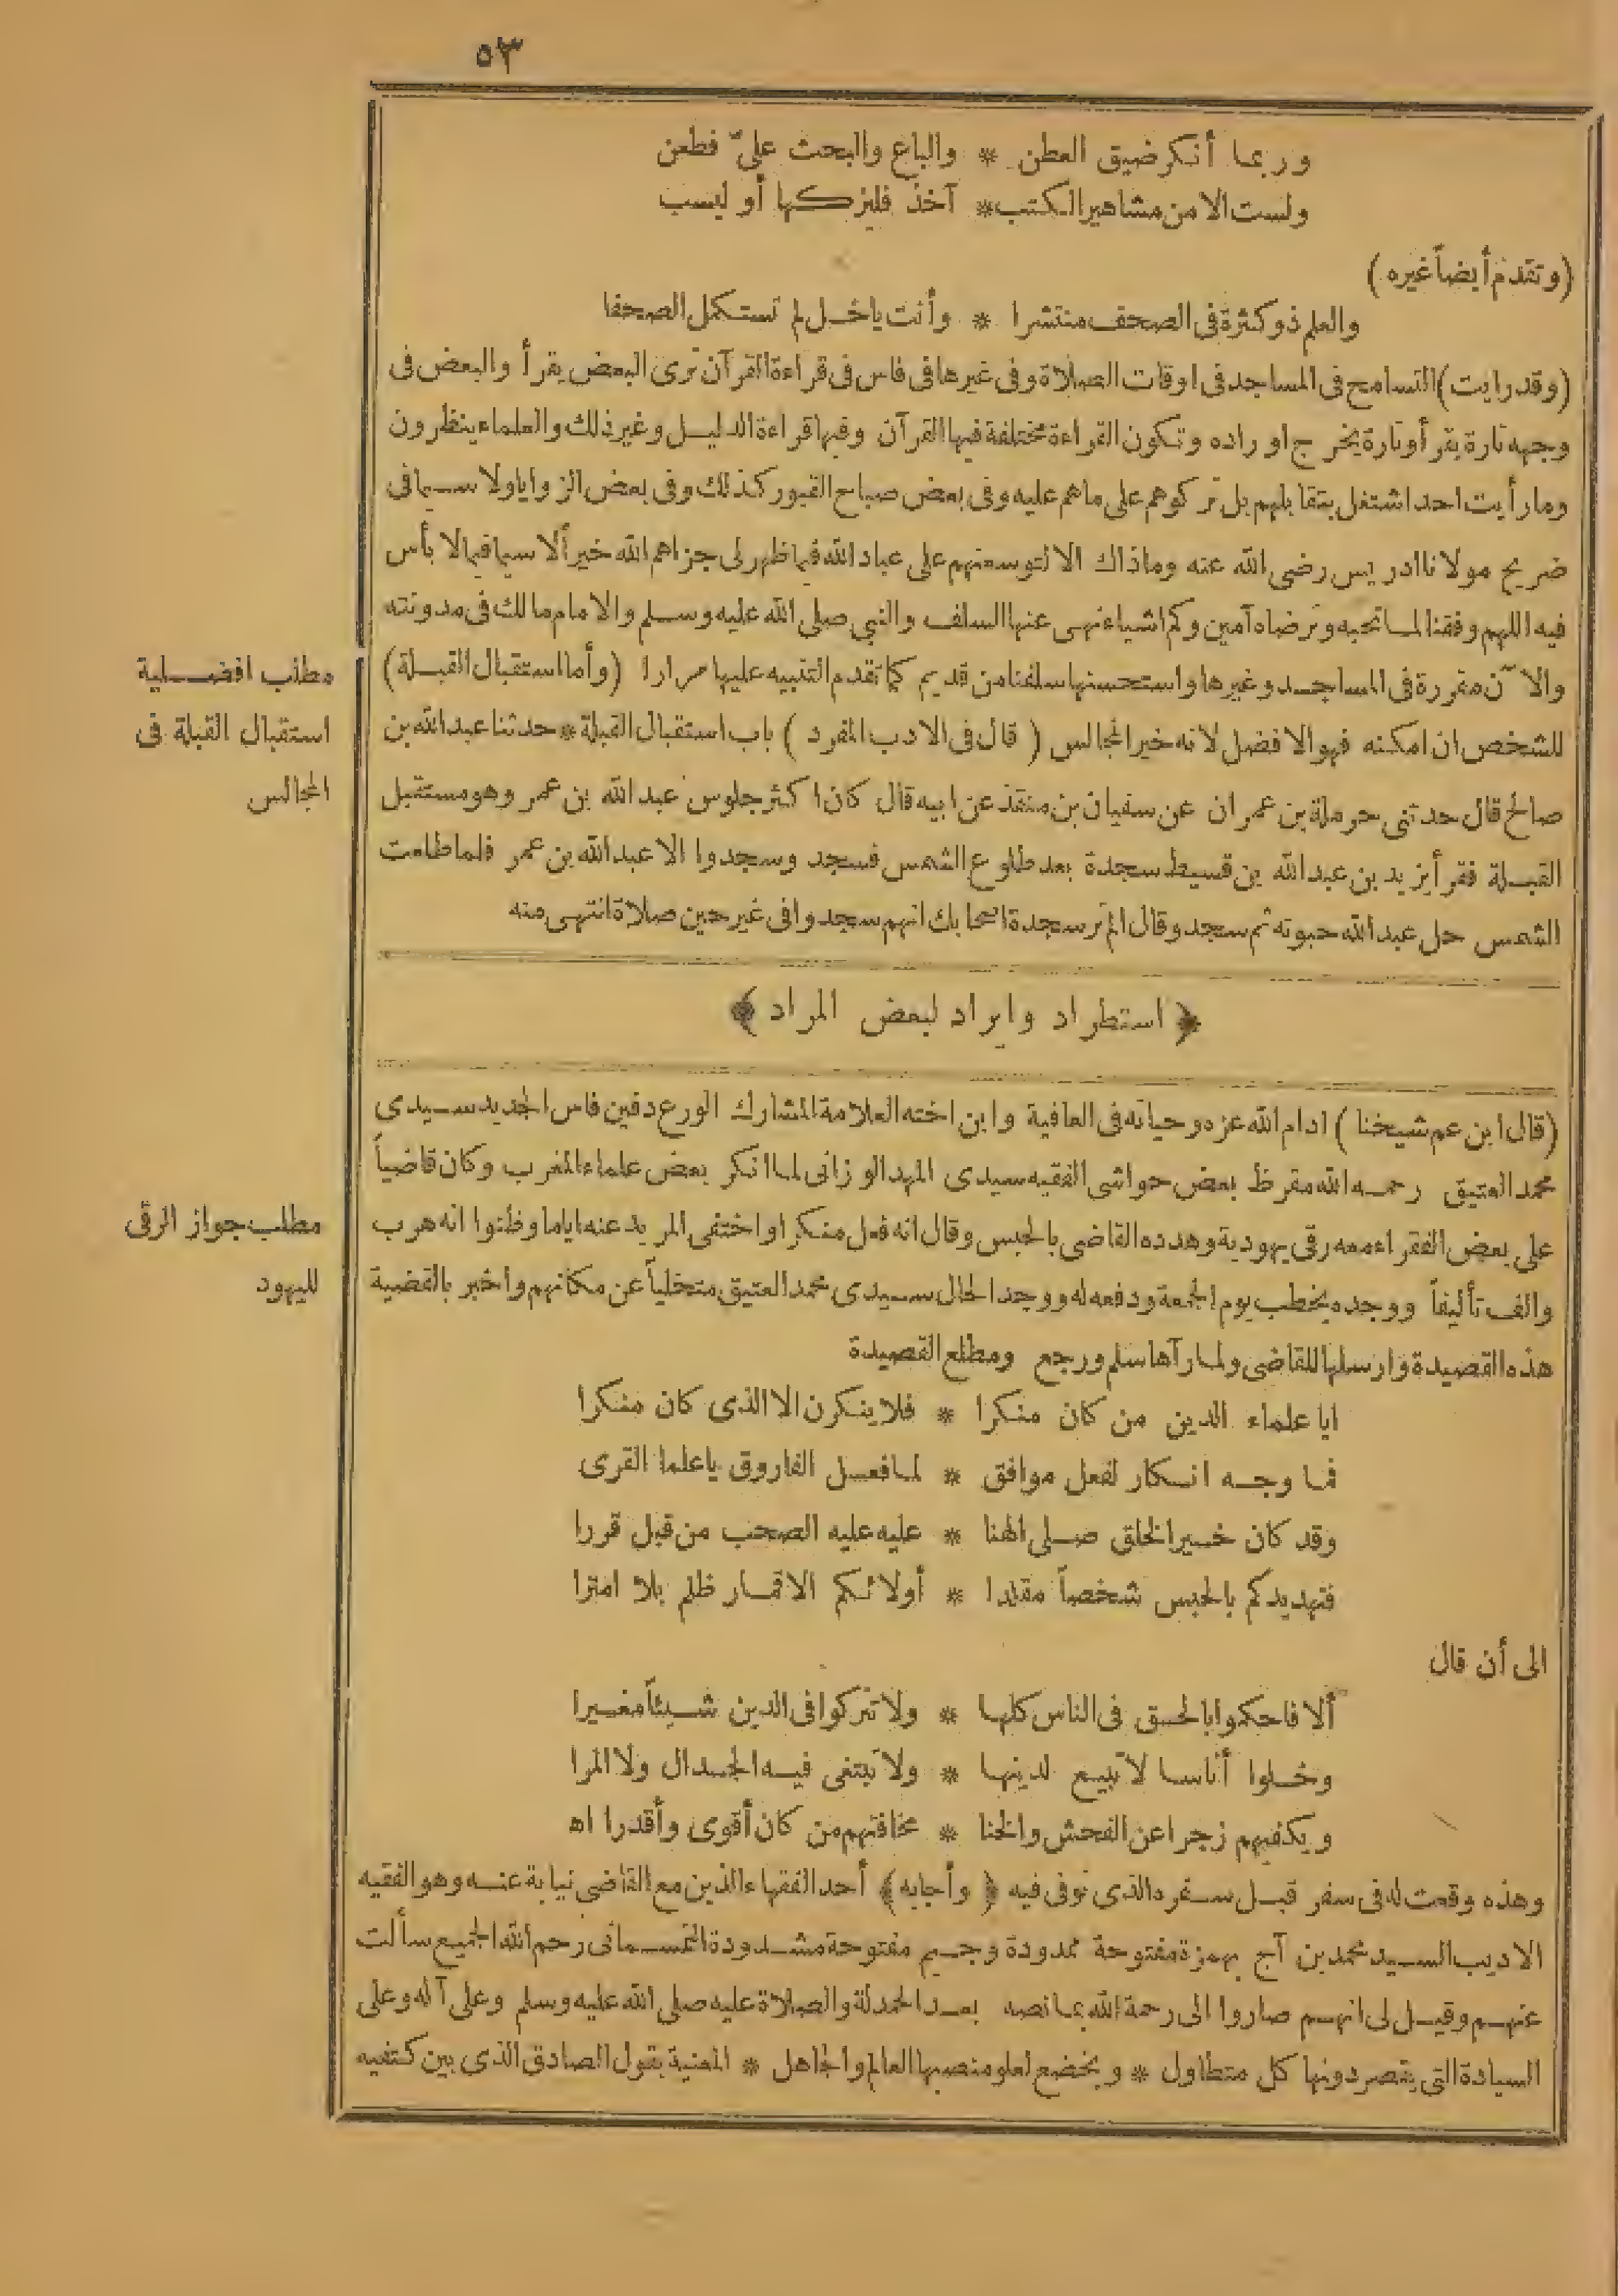 ٥٣
وربما أنكر ضيق العطن * والباع والبحث علىّ فطعن
ولست الا من مشاهير الكتب * آخذ فليزكها أو ليسب
(وتقدم أيضاً غيره)
والعلم ذو كثرة فى الصحف منتشرا * وأنت ياخل لم تستكمل الصحفا
(وقد رايت) التسامح فى المساجد فى اوقات الصلاة وفى غيرها فى فاس فى قراءة القرآن ترى البعض يقرأ والبعض فى
وجهه تارة يقرأ وتارة يخرج اوراده وتكون القراءة مختلفة فيها القرآن وفيها قراءة الدليل وغير ذلك والعلماء ينظرون
وما رأيت احد اشتغل بتقابلهم بل تركوهم على ما هم عليه وفى بعض صباح القبور كذلك وفى بعض الزوايا ولا سيما فى
ضريح مولانا ادريس رضى الله عنه وما ذاك الا لتوسعتهم على عباد الله فيما ظهر لى جزاهم الله خيراً ألا سيما فيما لا بأس
فيه اللهم وفقنا لما تحبه وترضاه آمين وكم اشياء نهى عنها السلف والنبى صلى الله عليه وسلم والامام مالك فى مدونته
والآن مقررة فى المساجد وغيرها واستحسنها سلفنا من قديم كما تقدم التنبيه عليها مرارا (وأما استقبال القبلة)
للشخص ان امكنه فهو الافضل لانه خير المجالس (قال فى الادب المفرد) باب استقبال القبلة * حدثنا عبد الله بن
صالح قال حدثنى حرملة بن عمران عن سفيان بن منقذ عن ابيه قال كان اكثر جلوس عبد الله بن عمر وهو مستقبل
القبلة فقرأ يزيد بن عبد الله بن قسيط سجدة بعد طلوع الشمس فسجد وسجدوا الا عبد الله بن عمر فلما طلعت
الشمس حل عبد الله حبوته ثم سجد وقال الم تر سجدة اصحابك انهم سجدوا فى غير حين صلاة انتهى منه
مطلب افضلية
استقبال القبلة فى
المجالس
﴿استطراد وايراد لبعض المراد﴾
(قال ابن عم شيخنا) ادام الله عزه وحياته فى العافية وابن اخته العلامة المشارك الورع دفين فاس الجديد سيدى
محمد العتيق رحمه الله مقرظ بعض حواشى الفقيه سيدى المهد الوزانى لما انكر بعض علماء المغرب وكان قاضياً
على بعض الفقراء معه رقى يهودية وهدده القاضى بالحبس وقال انه فعل منكرا واختفى المريد عنه اياما وظنوا انه هرب
والف تأليفاً ووجده يخطب يوم الجمعة ودفعه له ووجد الحال سيدى محمد العتيق متخلياً عن مكانهم واخبر بالقضية
هذه القصيدة وارسلها للقاضى ولما رآها سلم ورجع ومطلع القصيدة
مطلب جواز الرقى
لليهود
ايا علماء الدين من كان منكرا * فلا ينكرن الا الذى كان منكرا
فما وجه انكار لفعل موافق * لما فعل الفاروق ياعلما القرى
وقد كان خير الخلق صلى الهنا * عليه عليه الصحب من قبل قررا
فتهديدكم بالحبس شخصاً مقلدا * أولائكم الاقمار ظلم بلا امترا
الى أن قال
ألا فاحكموا بالحق فى الناس كلها * ولا تتركوا فى الدين شيئاً مغيرا
وخلوا أناسا لا تبيع لدينها * ولا تبتغى فيه الجدال ولا المرا
ويكفيهم زجرا عن الفحش والخنا * مخافتهم من كان أقوى وأقدرا اه
وهذه وقعت له فى سفر قبل سفره الذى توفى فيه ﴿وأجابه﴾ أحد الفقهاء الذين مع القاضى نيابة عنه وهو الفقيه
الاديب السيد محمد بن آج بهمزة مفتوحة ممدودة وجيم مفتوحة مشدودة التمسمانى رحم الله الجميع سألت
عنهم وقيل لى انهم صاروا الى رحمة الله بما نصه بعد الحمدلة والصلاة عليه صلى الله عليه وسلم وعلى آله وعلى
السيادة التى يقصر دونها كل متطاول * ويخضع لعلو منصبها العالم والجاهل * المعنية بقول الصادق الذى بين كتفيه